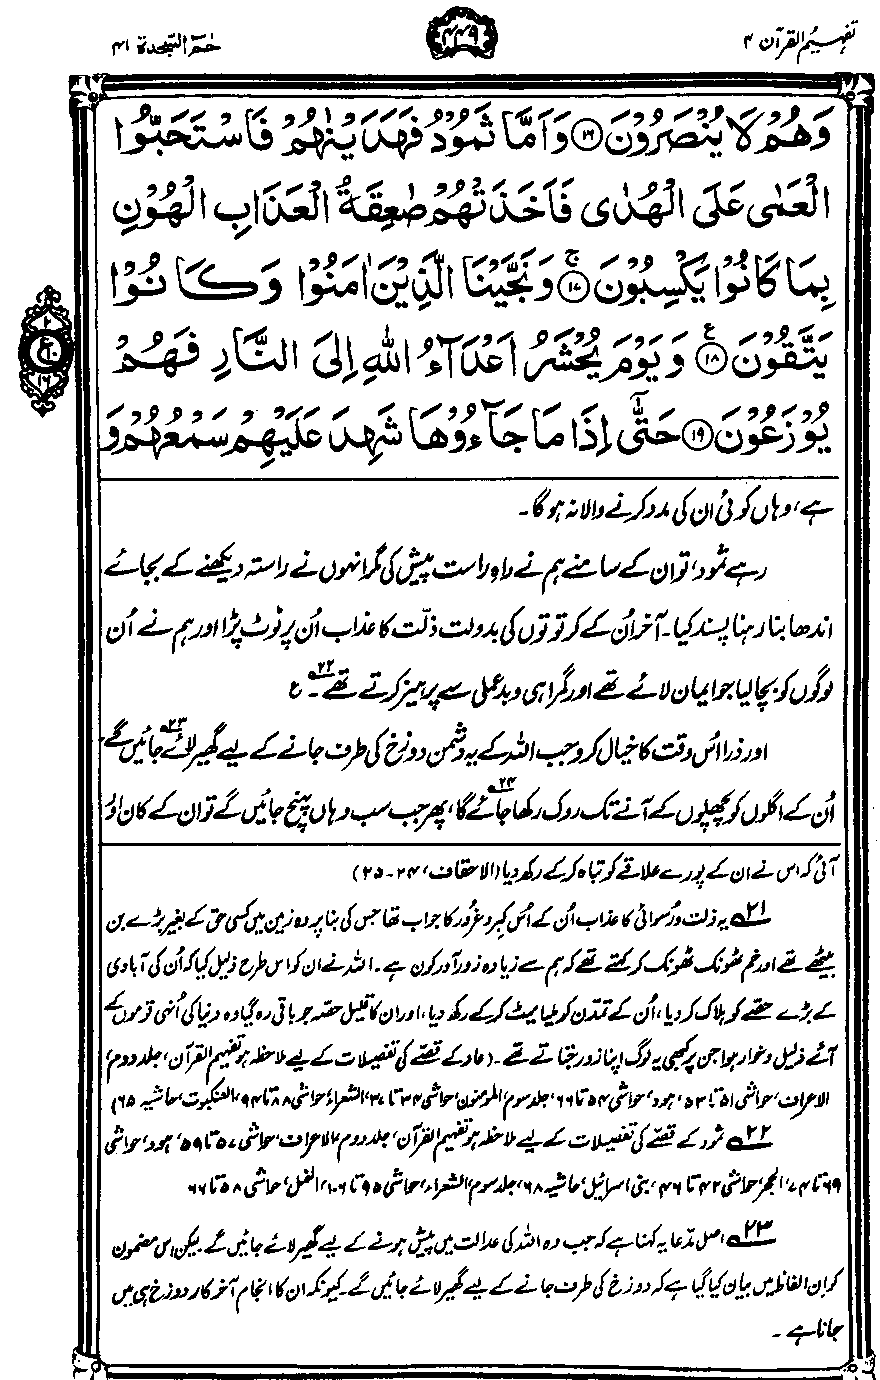 تفہیم القرآن ۴
۴۴۹
حٰمٓ السجدۃ ۴۱
وَهُمْ لَا يُنْصَرُوْنَ ۱۶ وَاَمَّا ثَمُوْدُ فَهَدَيْنٰهُمْ فَاسْتَحَبُّوا
الْعَمٰى عَلَى الْهُدٰى فَاَخَذَتْهُمْ صٰعِقَةُ الْعَذَابِ الْهُوْنِ
بِمَا كَانُوْا يَكْسِبُوْنَ ۱۷ ۚ وَنَجَّيْنَا الَّذِيْنَ اٰمَنُوْا وَكَانُوْا
يَتَّقُوْنَ ۱۸ ع وَيَوْمَ يُحْشَرُ اَعْدَآءُ اللّٰهِ اِلَى النَّارِ فَهُمْ
يُوْزَعُوْنَ ۱۹ حَتّٰٓى اِذَا مَا جَآءُوْهَا شَهِدَ عَلَيْهِمْ سَمْعُهُمْ وَ
۲
ع
۱۰
۱۶
ہے، وہاں کوئی ان کی مدد کرنے والا نہ ہوگا۔
رہے ثمود، تو ان کے سامنے ہم نے راہِ راست پیش کی مگر انہوں نے راستہ دیکھنے کے بجائے
اندھا بنا رہنا پسند کیا۔ آخر اُن کے کرتوتوں کی بدولت ذلّت کا عذاب اُن پر ٹوٹ پڑا اور ہم نے اُن
لوگوں کو بچا لیا جو ایمان لائے تھے اور گمراہی و بدعملی سے پرہیز کرتے تھے ۲۲۔ ع
اور ذرا اُس وقت کا خیال کرو جب اللہ کے یہ دشمن دوزخ کی طرف جانے کے لیے گھیر لائے ۲۳ جائیں گے۔
اُن کے اگلوں کو پچھلوں کے آنے تک روک رکھا جائے ۲۴ گا، پھر جب سب وہاں پہنچ جائیں گے تو ان کے کان اوُ
آئی کہ اس نے ان کے پورے علاقے کو تباہ کر کے رکھ دیا (الاحقاف، ۲۴-۲۵)
۲۱ یہ ذلت و رسوائی کا عذاب اُن کے اُس کبر و غُرور کا جواب تھا جس کی بنا پر وہ زمین میں کسی حق کے بغیر بڑے بن
بیٹھے تھے اور خم ٹھونک ٹھونک کر کہتے تھے کہ ہم سے زیادہ زور آور کون ہے۔ اللہ نے ان کو اس طرح ذلیل کیا کہ اُن کی آبادی
کے بڑے حصّے کو ہلاک کر دیا، اُن کے تمدّن کو ملیامیٹ کر کے رکھ دیا، اور ان کا قلیل حصّہ جو باقی رہ گیا وہ دنیا کی اُنہی قوموں کے
آگے ذلیل و خوار ہوا جن پر کبھی یہ لوگ اپنا زور جتاتے تھے۔ (عاد کے قصّے کی تفصیلات کے لیے ملاحظہ ہو تفہیم القرآن، جلد دوم،
الاعراف، حواشی ۵۱ تا ۵۳، ہود، حواشی ۵۴ تا ۶۶، جلد سوم، المومنون، حواشی ۳۴ تا ۳۷، الشعراء، حواشی ۸۸ تا ۹۴، العنکبوت، حاشیہ ۶۵)
۲۲ ثمود کے قصّے کی تفصیلات کے لیے ملاحظہ ہو تفہیم القرآن، جلد دوم، الاعراف، حواشی ۵۷ تا ۵۹، ہود، حواشی
۶۹ تا ۷۴، الحجر، حواشی ۴۲ تا ۴۶، بنی اسرائیل، حاشیہ ۶۸، جلد سوم، الشعراء، حواشی ۹۵ تا ۱۰۶، النمل، حواشی ۵۸ تا ۶۶
۲۳ اصل مدّعا یہ کہنا ہے کہ جب وہ اللہ کی عدالت میں پیش ہونے کے لیے گھیر لائے جائیں گے۔ لیکن اس مضمون
کو ان الفاظ میں بیان کیا گیا ہے کہ دوزخ کی طرف جانے کے لیے گھیر لائے جائیں گے۔ کیونکہ ان کا انجام آخر کار دوزخ ہی میں
جانا ہے۔